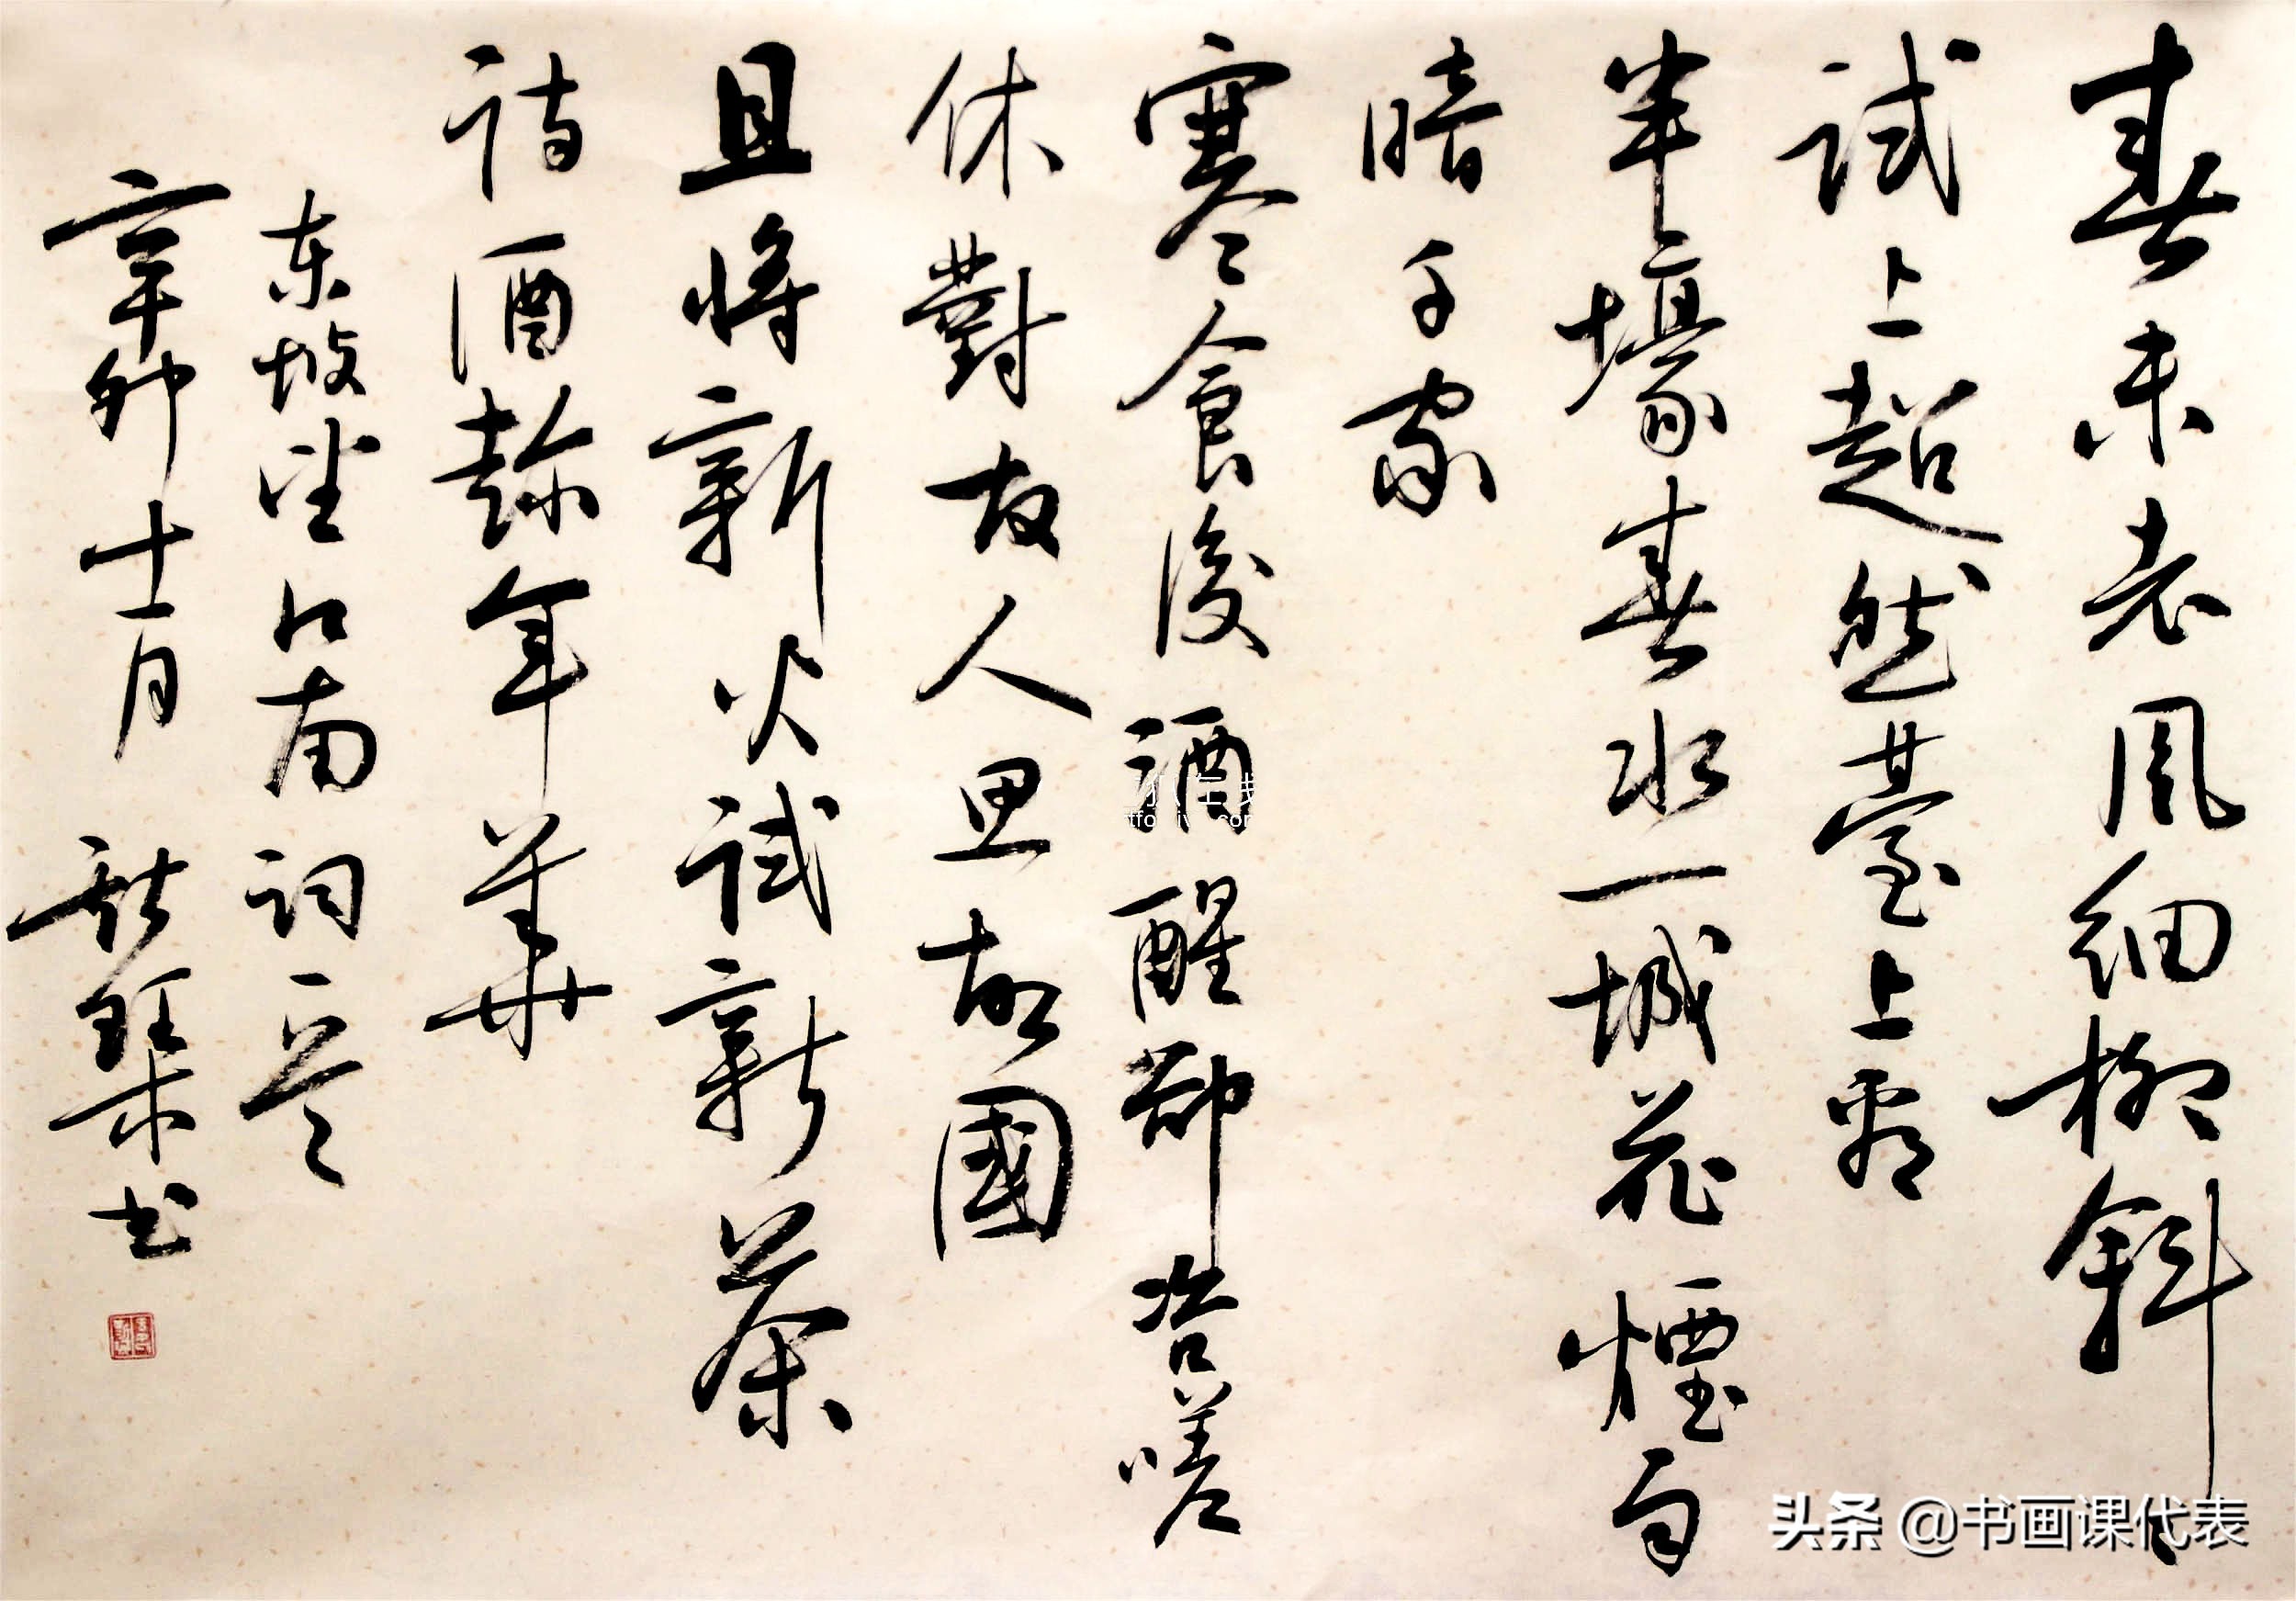 春未老風細柳斜
試上超然臺上看
半壕春水一城花煙雨
暗千家
寒食後酒醒卻咨嗟
休對故人思故國
且將新火試新茶
詩酒趁年華
东坡望江南词一首
辛卯十一月 书
头条 @书画课代表